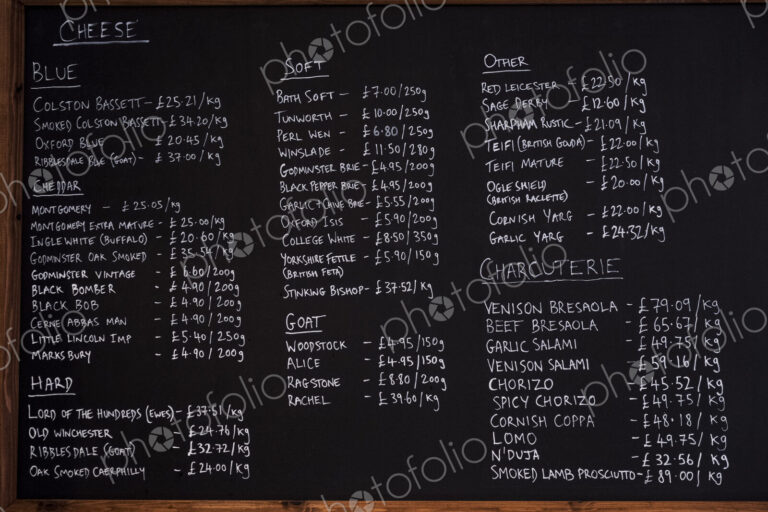 CHEESE
BLUE
COLSTON BASSETT - £25.21/kg
SMOKED COLSTON BASSETT - £34.20/kg
OXFORD BLUE £20.45/kg
RIBBLESDALE BLUE (GOAT) - £37.00/kg
CHEDDAR
MONTGOMERY - £25.05/kg
MONTGOMERY EXTRA MATURE - £25.00/kg
INGLEWHITE (BUFFALO) - £20.60/kg
GODMINSTER OAK SMOKED - £35.54/kg
GODMINSTER VINTAGE - £6.60/200g
BLACK BOMBER - £4.90/200g
BLACK BOB - £4.90/200g
CERNE ABBAS MAN - £4.90/200g
LITTLE LINCOLN IMP - £5.40/250g
MARKSBURY - £4.90/200g
HARD
LORD OF THE HUNDREDS (EWES) - £37.51/kg
OLD WINCHESTER £24.76/kg
RIBBLESDALE (GOAT) - £32.72/kg
OAK SMOKED CAERPHILLY - £24.00/kg
SOFT
BATH SOFT - £7.00/250g
TUNWORTH - £10.00/250g
PERL WEN - £6.80/250g
WINSLADE - £11.50/280g
GODMINSTER BRIE - £4.95/200g
BLACK PEPPER BRIE - £4.95/200g
GARLIC + CHIVE BRIE - £5.55/200g
OXFORD ISIS - £5.90/200g
COLLEGE WHITE - £8.50/350g
YORKSHIRE FETTLE - £5.90/150g
(BRITISH FETA)
STINKING BISHOP - £37.52/kg
GOAT
WOODSTOCK - £4.95/150g
ALICE - £4.95/150g
RAGSTONE - £8.80/200g
RACHEL - £39.60/kg
OTHER
RED LEICESTER - £22.50/kg
SAGE DERBY £12.60/kg
SHARPHAM RUSTIC - £21.09/kg
TEIFI (BRITISH GOUDA) - £22.00/kg
TEIFI MATURE - £22.50/kg
OGLESHIELD - £20.00/kg
(BRITISH RACLETTE)
CORNISH YARG - £22.00/kg
GARLIC YARG - £24.32/kg
CHARCUTERIE
VENISON BRESAOLA - £79.09/kg
BEEF BRESAOLA - £65.67/kg
GARLIC SALAMI - £49.75/kg
VENISON SALAMI - £59.16/kg
CHORIZO - £45.52/kg
SPICY CHORIZO - £49.75/kg
CORNISH COPPA - £48.18/kg
LOMO - £49.75/kg
N'DUJA - £32.56/kg
SMOKED LAMB PROSCIUTTO - £89.00/kg
photofolio
photofolio
photofolio
photofolio
photofolio
photofolio